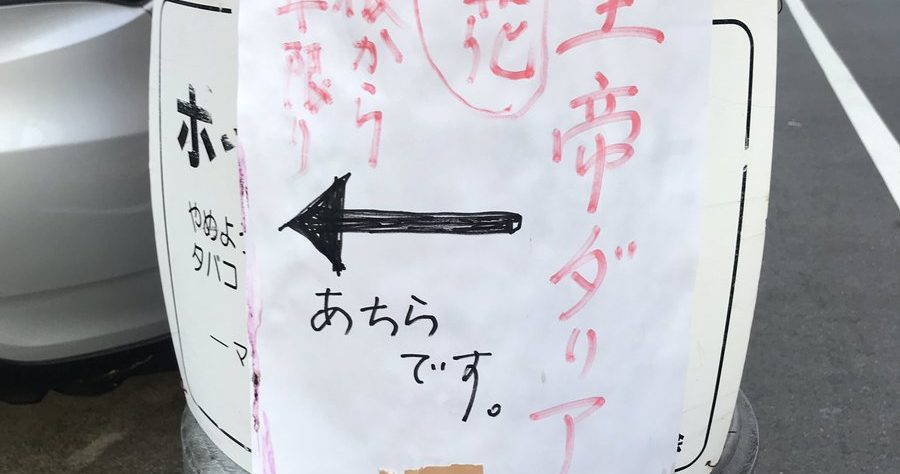 皇帝ダリア
花
から
限り
あちら
です。
ポ
やめよ
タバコ